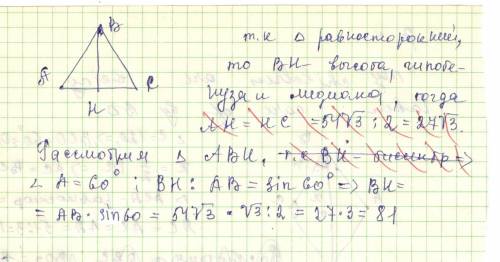 B
т.к △ равносторонний,
A
C
то BH - высота, гипоте-
H
нуза и медиана, тогда
AH = HC = 54√3 : 2 = 27√3.
Рассмотрим △ ABH, т.к BH - биссектр =>
∠ A = 60° ; BH : AB = sin 60° => BH =
= AB · sin 60 = 54√3 · √3 : 2 = 27 · 3 = 81